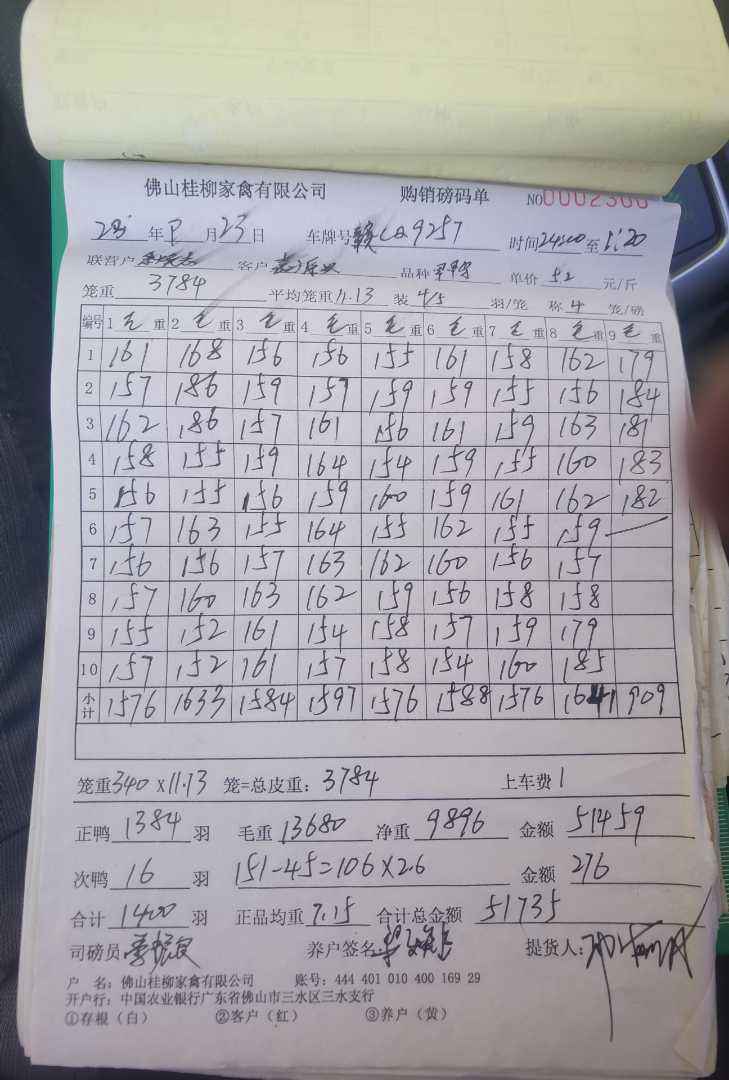 佛山桂柳家禽有限公司 购销磅码单 NO 0002366
年 月23日 车牌号赣CQ9257 时间 至1:20
联营户 客户 品种 单价5.2元/斤
笼重3784 平均笼重11.13 装4/5羽/笼 称4笼/磅
编号 1毛重 2毛重 3毛重 4毛重 5毛重 6毛重 7毛重 8毛重 9毛重
1 161 168 156 156 155 161 158 162 179
2 157 186 159 157 159 159 155 156 184
3 162 186 157 161 156 161 159 163 181
4 158 155 159 164 154 159 155 160 183
5 156 155 156 159 160 159 161 162 182
6 157 163 155 164 155 162 155 159
7 156 156 157 163 162 160 156 157
8 157 160 163 162 159 156 158 158
9 155 152 161 154 158 157 159 179
10 157 152 161 157 158 154 160 185
小计 1576 1633 1584 1597 1576 1588 1576 1641 909
笼重340×11.13笼=总皮重：3784 上车费1
正鸭1384羽 毛重13680 净重9896 金额51459
次鸭16羽 151-45=106×2.6 金额276
合计1400羽 正品均重7.15 合计总金额51735
司磅员 养户签名 提货人：
户 名：佛山桂柳家禽有限公司 账号：444 401 010 400 169 29
开户行：中国农业银行广东省佛山市三水区三水支行
①存根（白） ②客户（红） ③养户（黄）